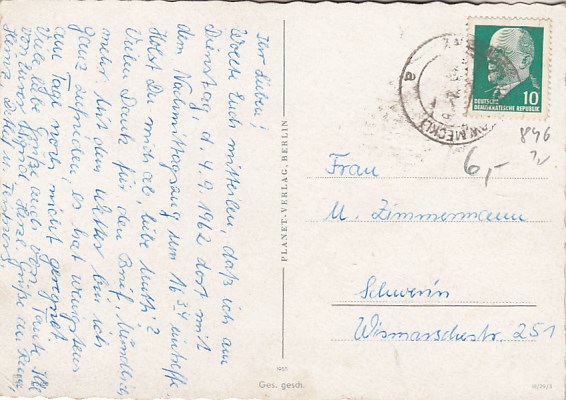 Ihr Lieben!
Wollte Euch mitteilen, daß ich am
Dienstag d. 4.9.1962 dort mit
dem Nachmittagszug um 16 34 eintreffe
Holst Du mich ab, liebe Mutti?
Vielen Dank für den Brief. Mündlich
mehr. Mit dem Wetter bin ich
ganz zufrieden, es hat wenigstens
am Tage noch nicht geregnet.
Viele liebe Grüße auch von Tante
von Eurer Sigrid. Herzl. Grüße an
PLANET-VERLAG, BERLIN
1955
Ges. gesch.
DEUTSCHE
DEMOKRATISCHE REPUBLIK
10
a
846
6,-
Frau
M. Zimmermann
Schwerin
Wismarschestr. 251